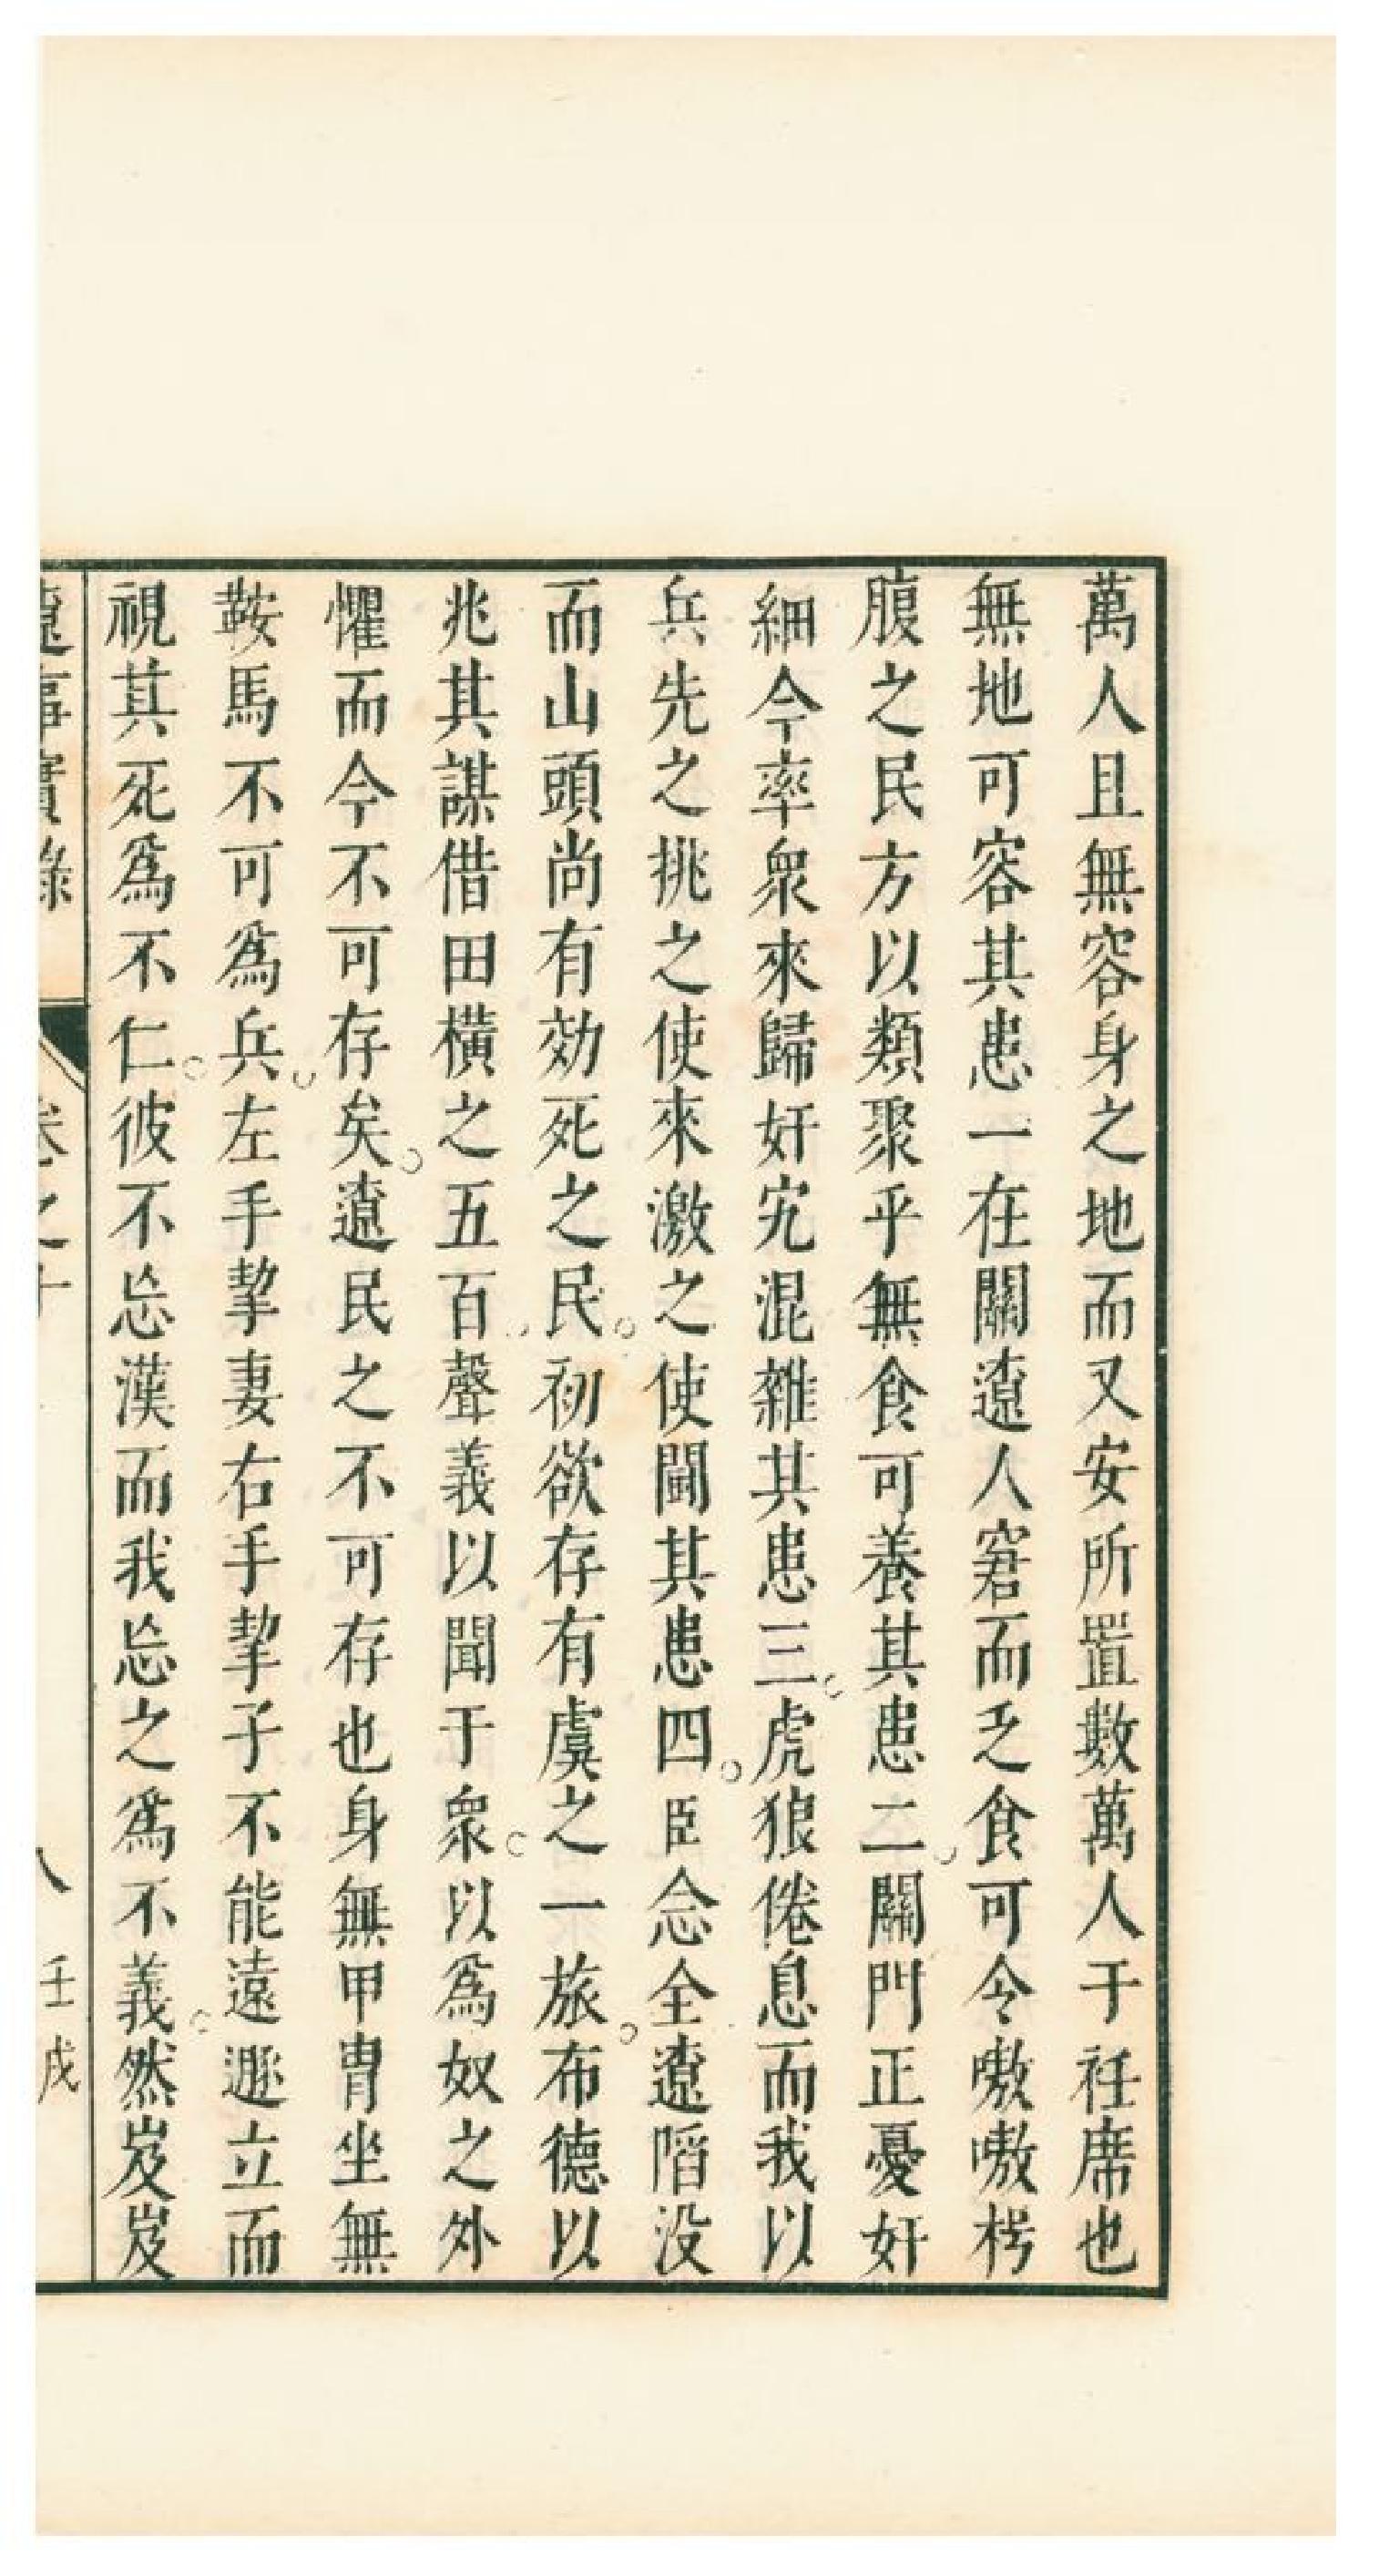 萬人且無容身之地而又安所置數萬人于衽席也
無地可容其患一在關遼人窘而乏食可令嗷嗷枵
腹之民方以類聚乎無食可養其患二關門正憂奸
細今率衆來歸奸宄混雜其患三虎狼倦息而我以
兵先之挑之使來激之使鬭其患四臣念全遼陷没
而山頭尚有効死之民初欲存有虞之一旅布德以
兆其謀借田橫之五百聲義以聞于衆以爲奴之外
懼而今不可存矣遼民之不可存也身無甲冑坐無
鞍馬不可爲兵左手挈妻右手挈子不能遠遯立而
視其死爲不仁彼不忘漢而我忘之爲不義然岌岌
遼事實錄 卷之十 八 壬戌